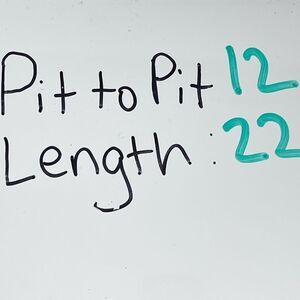 Pit to Pit 12
Length : 22